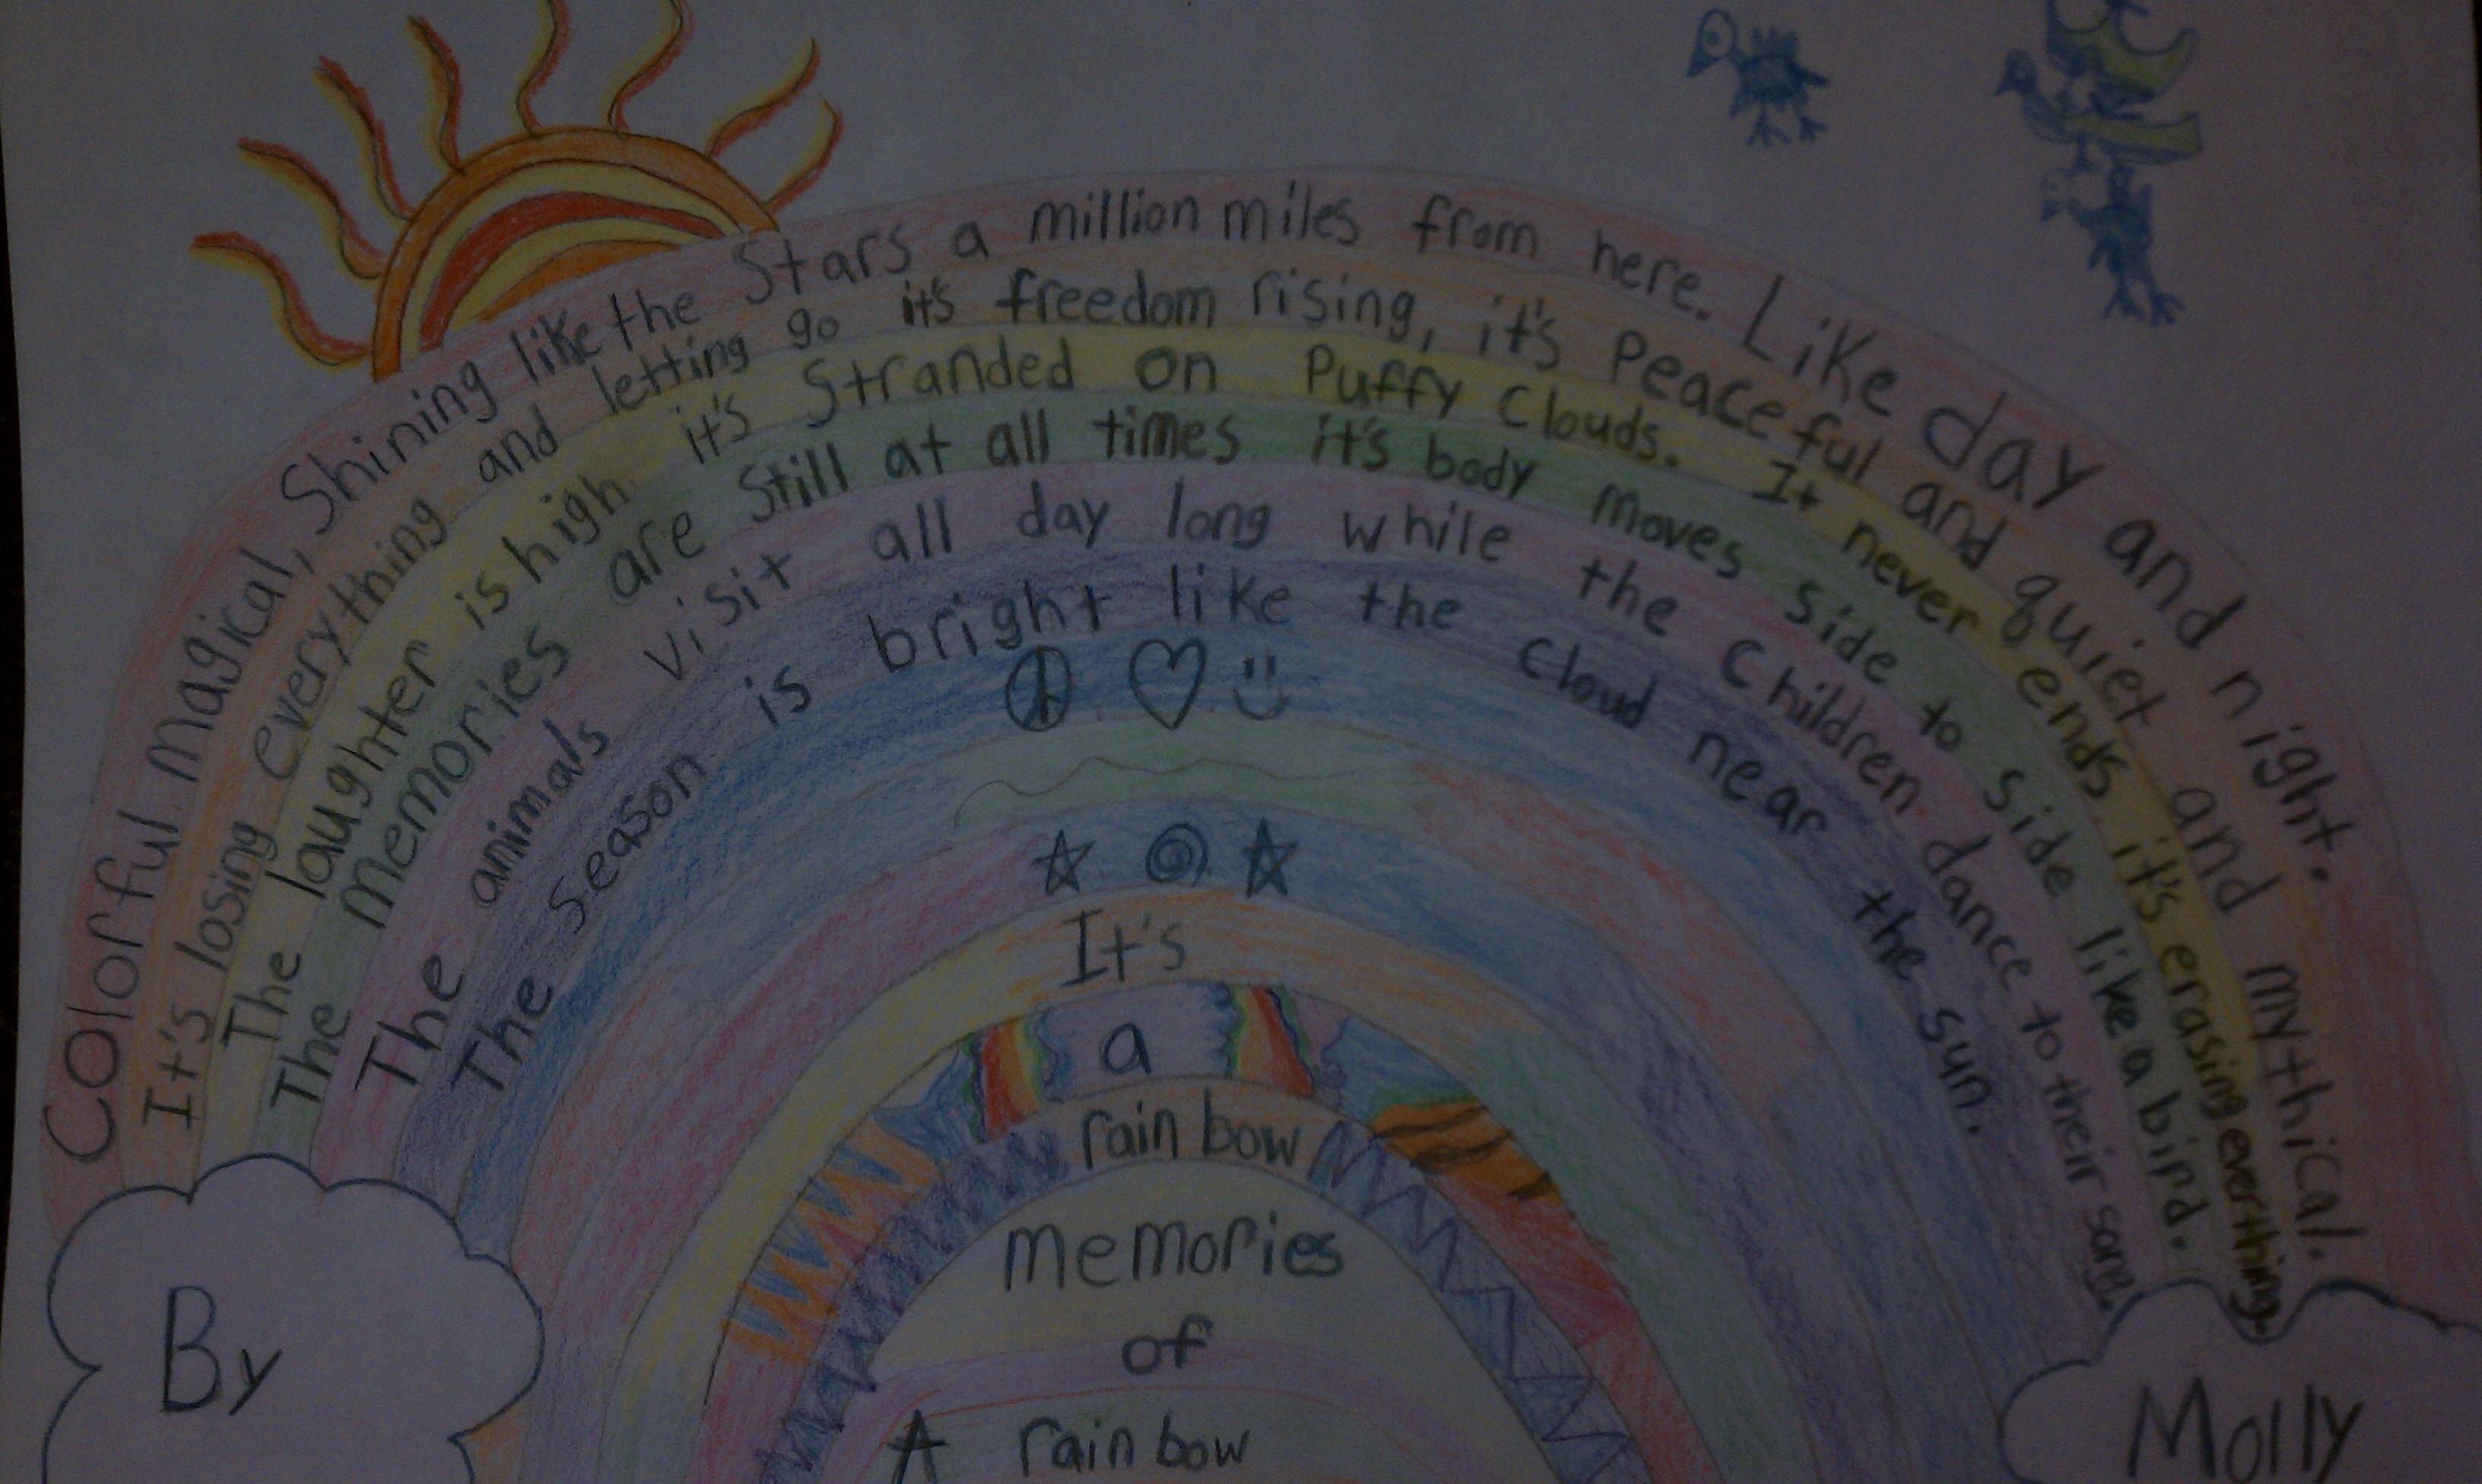 Colorful magical, Shining like the Stars a million miles from here. Like day and night.
It's losing everything and letting go it's freedom rising, it's Peaceful and quiet and mythical.
The laughter is high. it's Stranded on Puffy Clouds. It never ends. it's erasing everthing.
The memories are Still at all times. it's body moves side to side like a bird.
The animals visit all day long while the Children dance to their song.
The season is bright like the cloud near the sun.
It's
a
rain bow
memories
of
A rain bow
By
Molly